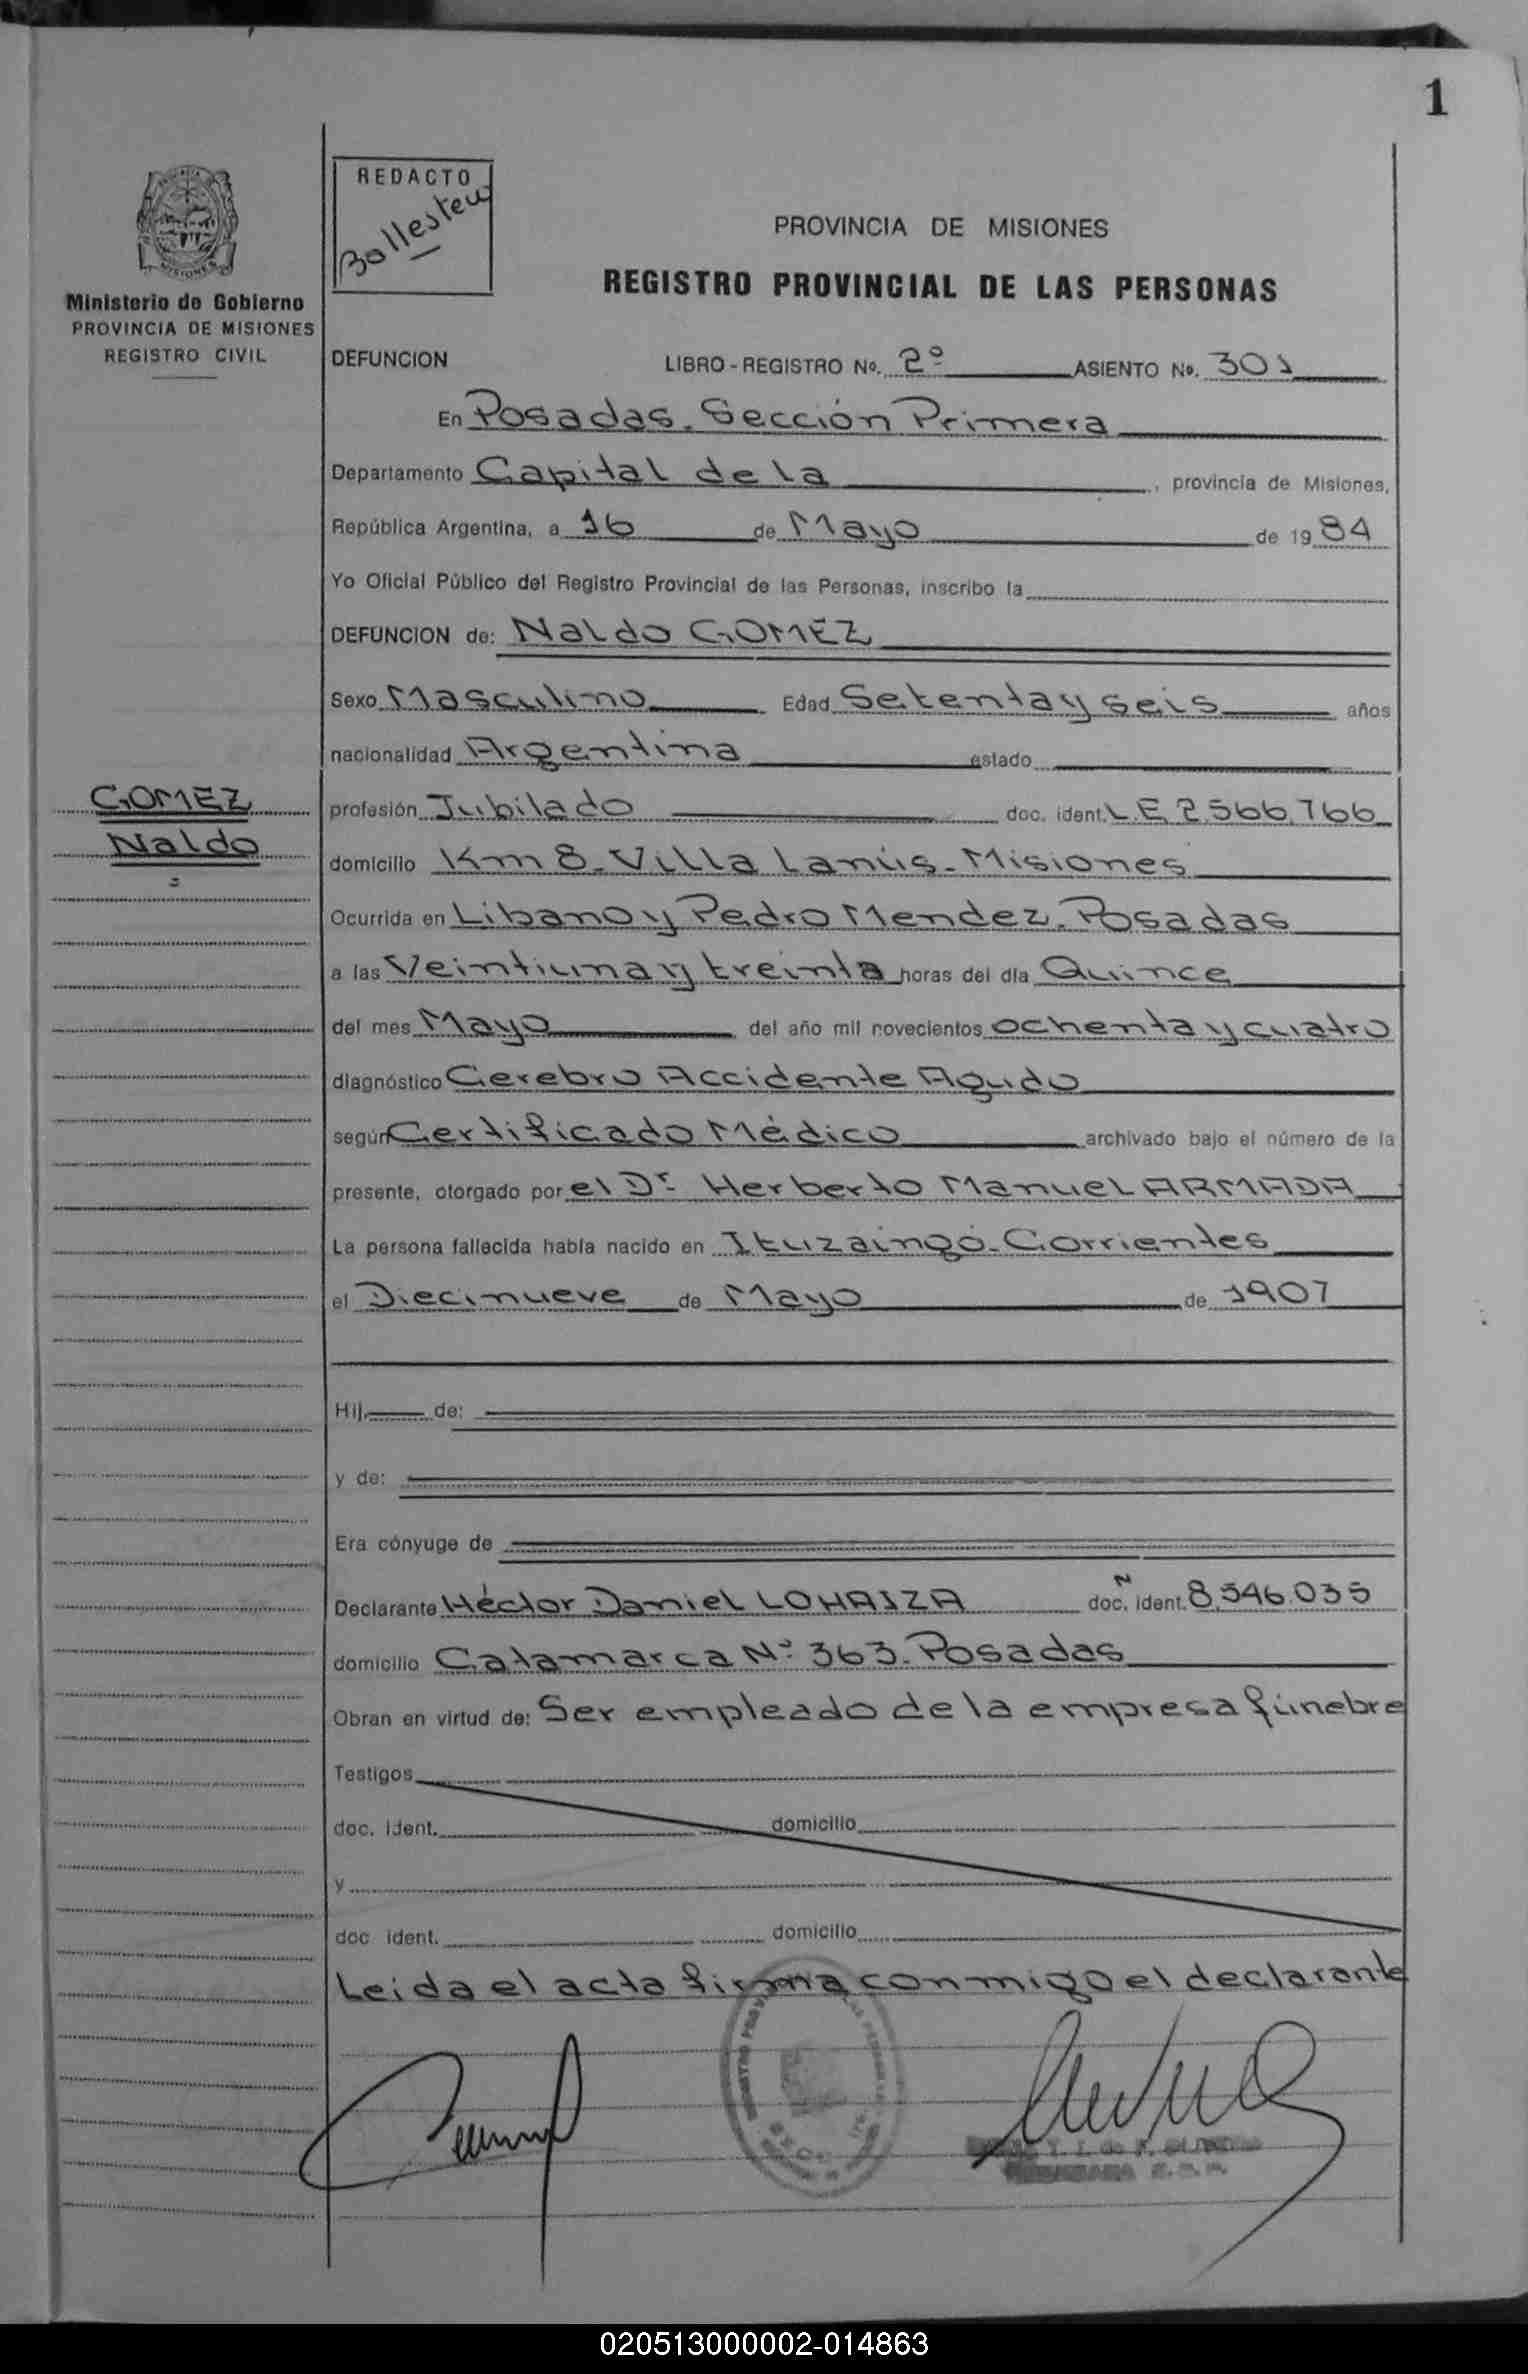 1
REDACTO
Ballesteu
PROVINCIA DE MISIONES
REGISTRO PROVINCIAL DE LAS PERSONAS
MISIONES
Ministerio de Gobierno
PROVINCIA DE MISIONES
REGISTRO CIVIL
DEFUNCION LIBRO - REGISTRO Nº. 2º ASIENTO Nº. 301
En Posadas. Sección Primera
Departamento Capital de la , provincia de Misiones,
República Argentina, a 16 de Mayo de 1984
Yo Oficial Público del Registro Provincial de las Personas, inscribo la
DEFUNCION de: Naldo GOMEZ
Sexo Masculino Edad Setenta y seis años
nacionalidad Argentina estado
GOMEZ
Naldo
profesión Jubilado doc. ident. L.E. 2.566.766
domicilio Km 8. Villa Lanús. Misiones
Ocurrida en Libano y Pedro Mendez. Posadas
a las Veintiuna y treinta horas del día Quince
del mes Mayo del año mil novecientos ochenta y cuatro
diagnóstico Cerebro Accidente Agudo
según Certificado Médico archivado bajo el número de la
presente, otorgado por el Dr. Herberto Manuel ARMADA
La persona fallecida había nacido en Ituzaingó. Corrientes
el Diecinueve de Mayo de 1907
Hij de:
y de:
Era cónyuge de
Declarante Héctor Daniel LOHAIZA doc. N ident. 8.546.035
domicilio Catamarca Nº 363. Posadas
Obran en virtud de: Ser empleado de la empresa fúnebre
Testigos
doc. ident. domicilio
y
doc. ident. domicilio
Leida el acta firma conmigo el declarante
020513000002-014863